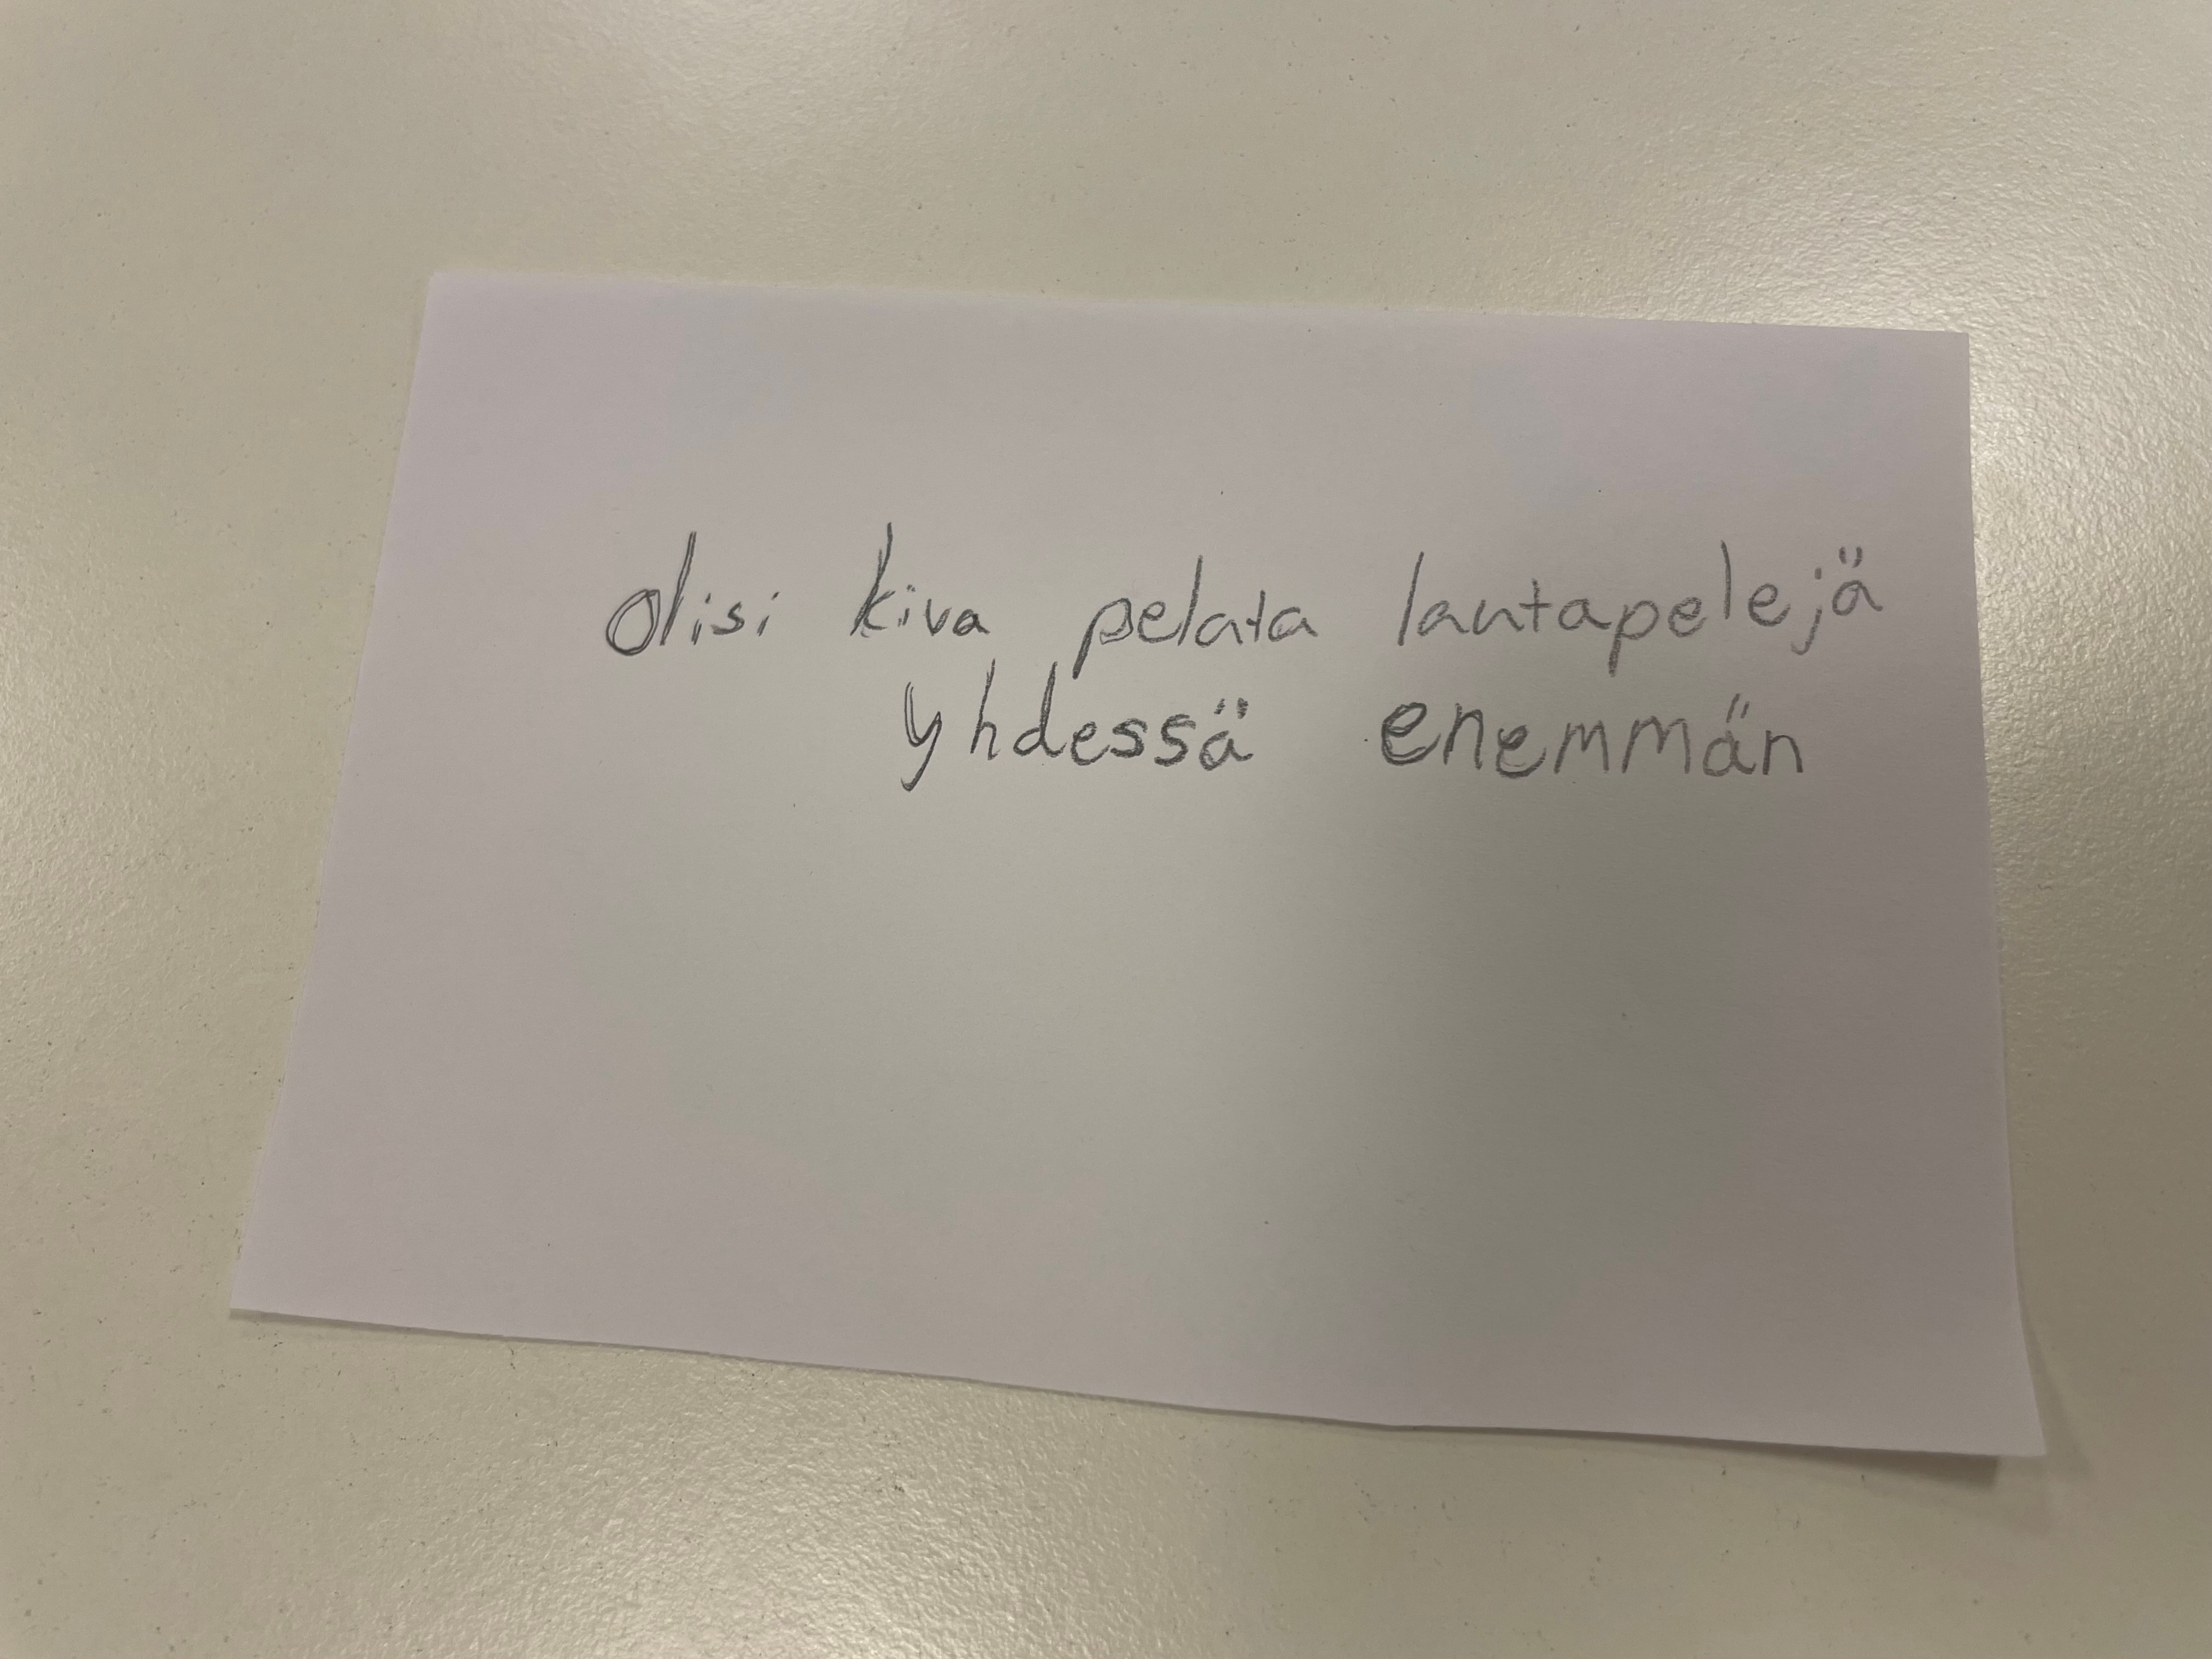 Olisi kiva pelata lautapelejä
yhdessä enemmän